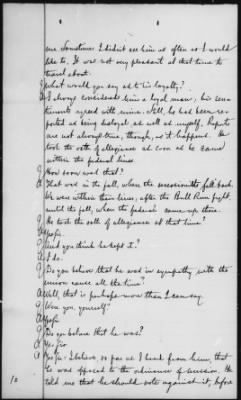 me. Sometimes I didn't see him as often as I would
like to. It was not very pleasant at that time to
travel about.
Q What would you say as to his loyalty?
A I always considered him a loyal man; his sen-
timents agreed with mine. Still, he had been re-
ported as being disloyal as well as myself. Reports
are not always true, though, as it happened. He
took the oath of allegiance as soon as he came
within the federal lines.
Q How soon was that?
A That was in the fall, when the secessionists fell back.
We were within their lines, after the Bull Run fight,
until the fall, when the federals came up there.
Q He took the oath of allegiance at that time?
A Yes sir.
Q And you think he kept it?
A I do.
Q Do you believe that he was in sympathy with the
union cause all the time?
A Well, that is perhaps more than I can say.
Q Were you, yourself?
A Yes sir.
Q Do you believe that he was?
A Yes sir
A Yes sir. I believe, so far as I heard from him, that
he was opposed to the ordinance of secession. He
told me that he should vote against it, before